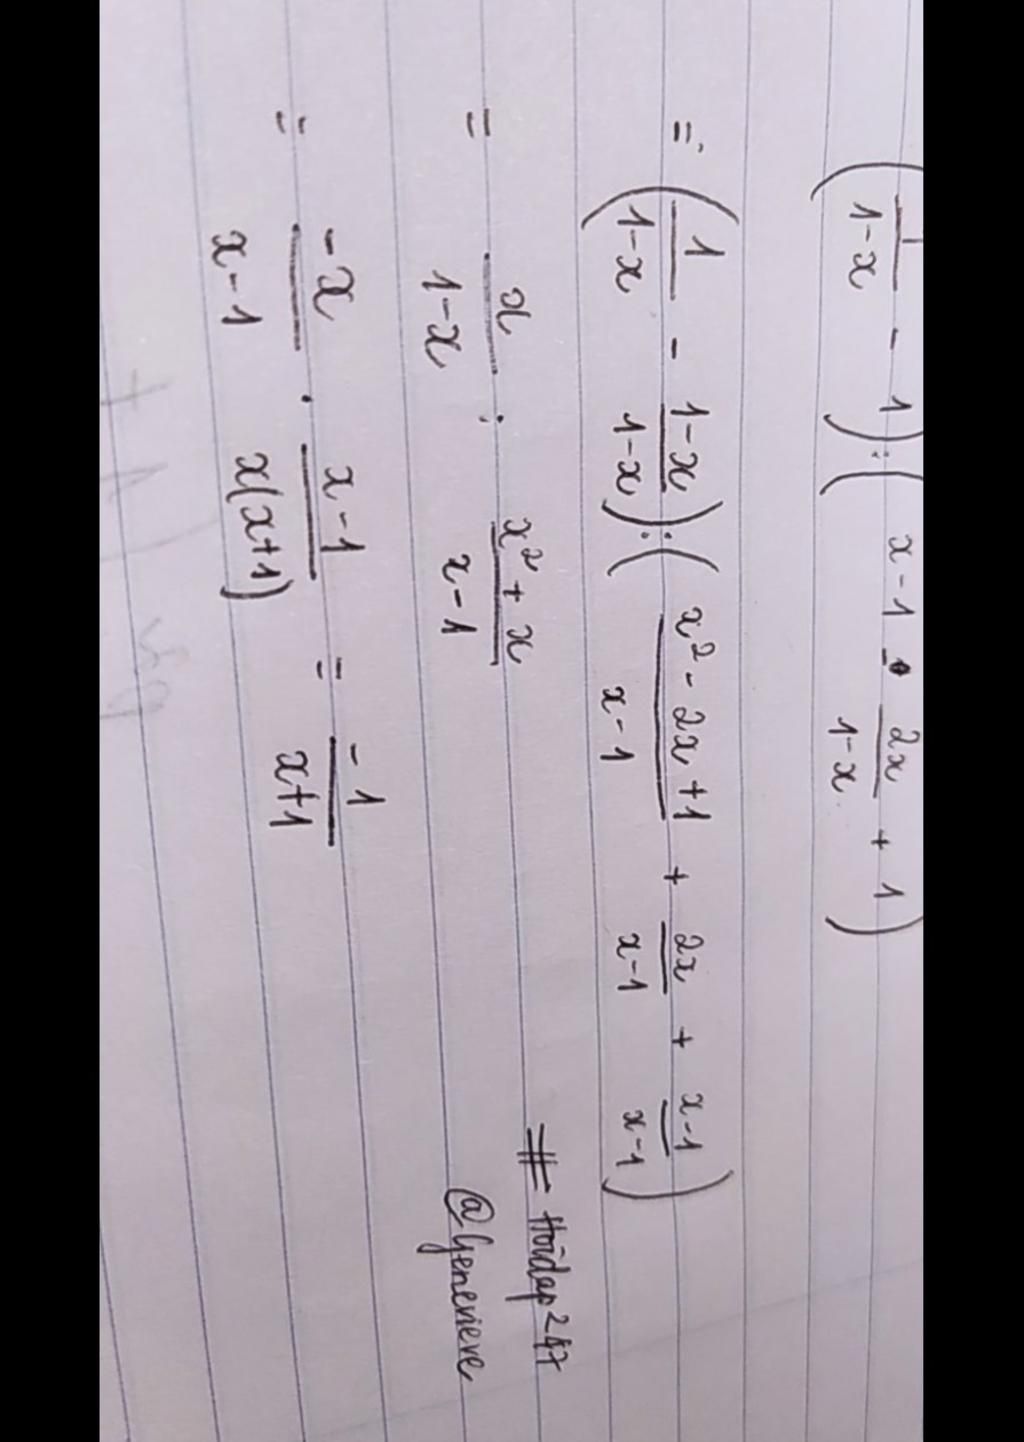 (1/(1-x) - 1) : (x-1 - 2x/(1-x) + 1)
= (1/(1-x) - (1-x)/(1-x)) : ((x² - 2x + 1)/(x-1) + 2x/(x-1) + (x-1)/(x-1))
= x/(1-x) : (x² + x)/(x-1)
= -x/(x-1) . (x-1)/(x(x+1)) = -1/(x+1)
# Hoidap247
@Genevieve